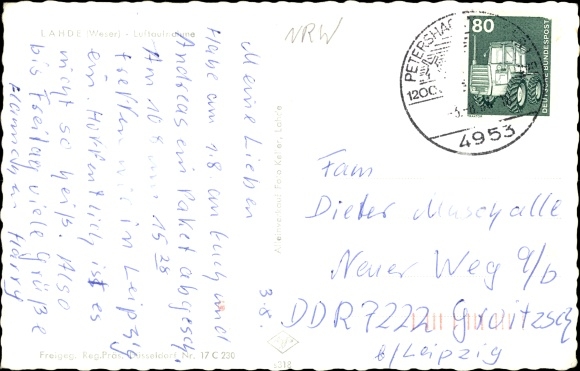 LAHDE (Weser) - Luftaufnahme
NRW
3.8.
Meine Lieben
Habe am 1.8 an Euch und
Andreas ein Paket abgesch.
Am 10.8 um 15 28
treffen wir in Leipzig
ein. Hoffentlich ist es
nicht so heiß. Also
bis Freitag viele Grüße
Hannchen Harry
Freigeg. Reg. Präs. Düsseldorf Nr. 17 C 230
Foto Keller, Lahde
5318
PETERSHAG
1200
4953
80
DEUTSCHE BUNDESPOST
Fam
Dieter Muschalle
Neuer Weg 9/b
DDR 7222 Groitzsch
b/Leipzig